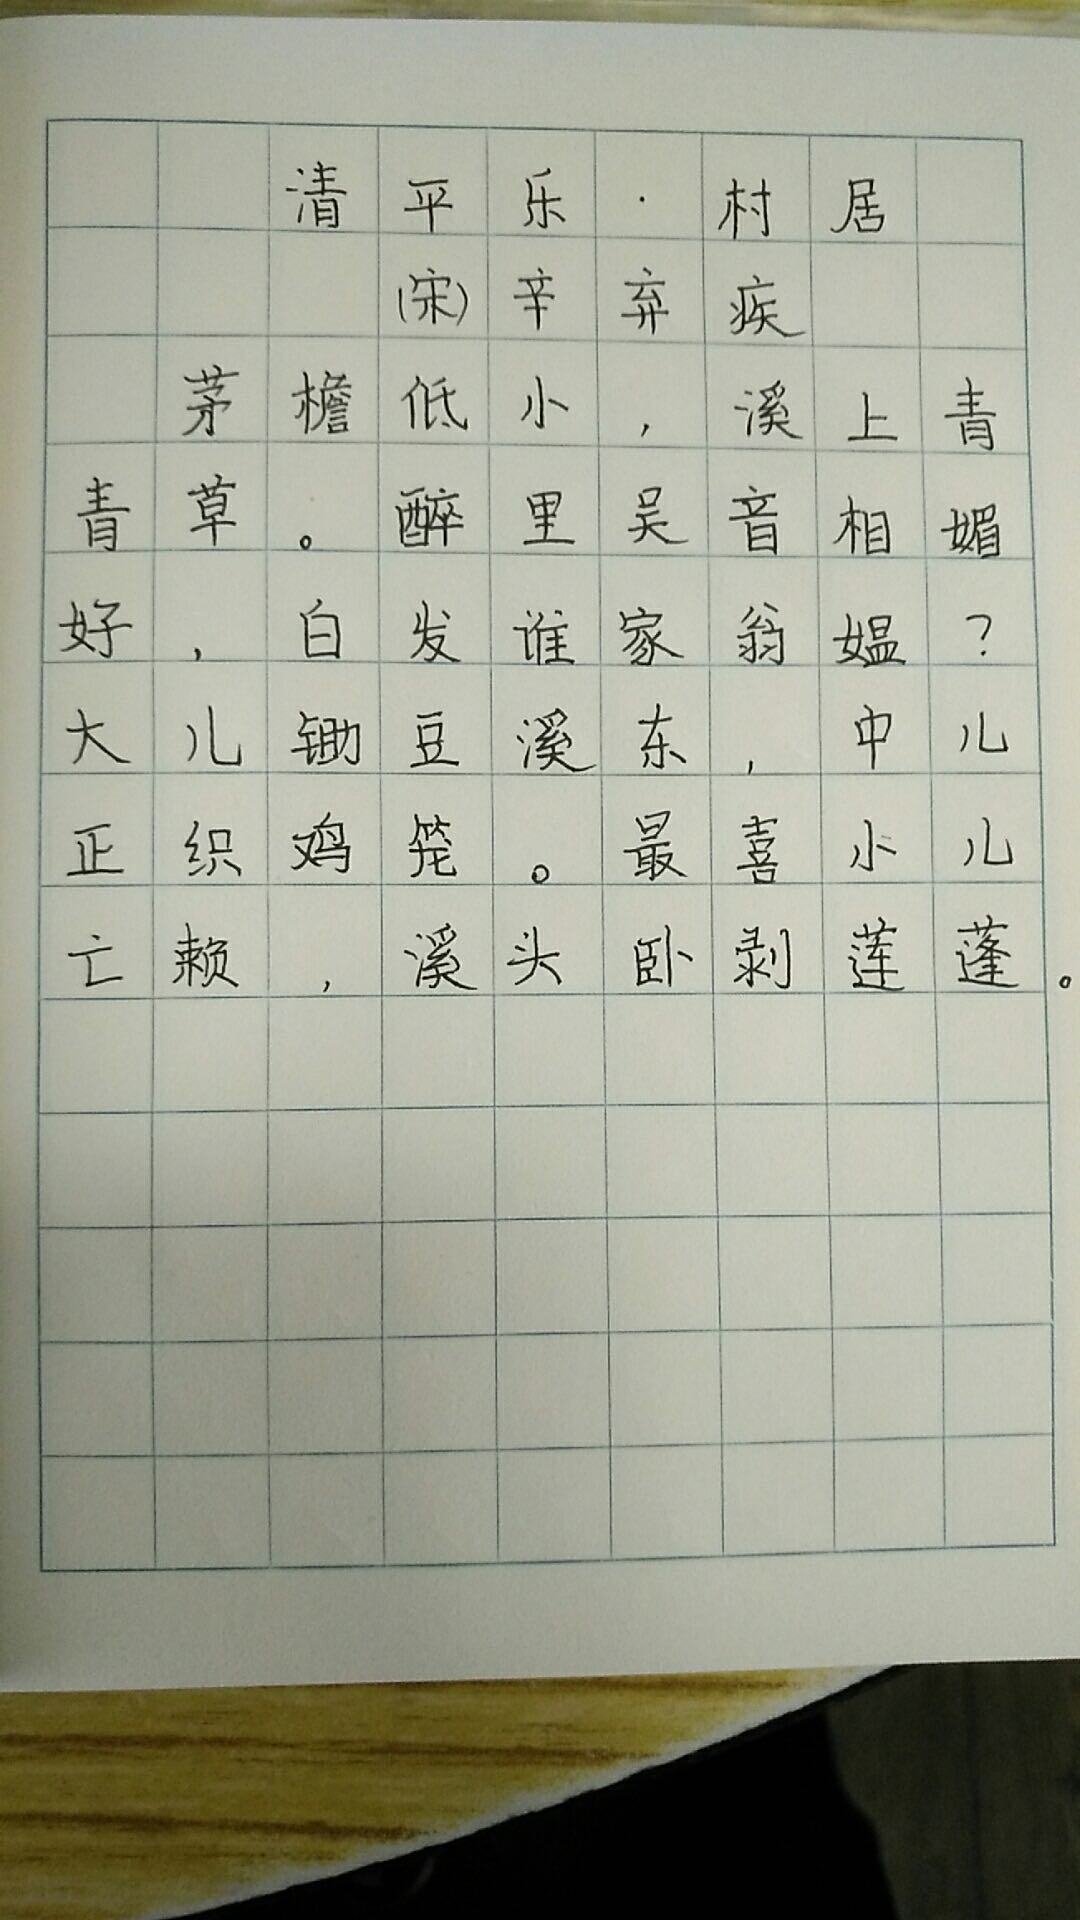 清平乐·村居
(宋)辛弃疾
茅檐低小,溪上青
青草。醉里吴音相媚
好,白发谁家翁媪?
大儿锄豆溪东,中儿
正织鸡笼。最喜小儿
亡赖,溪头卧剥莲蓬。